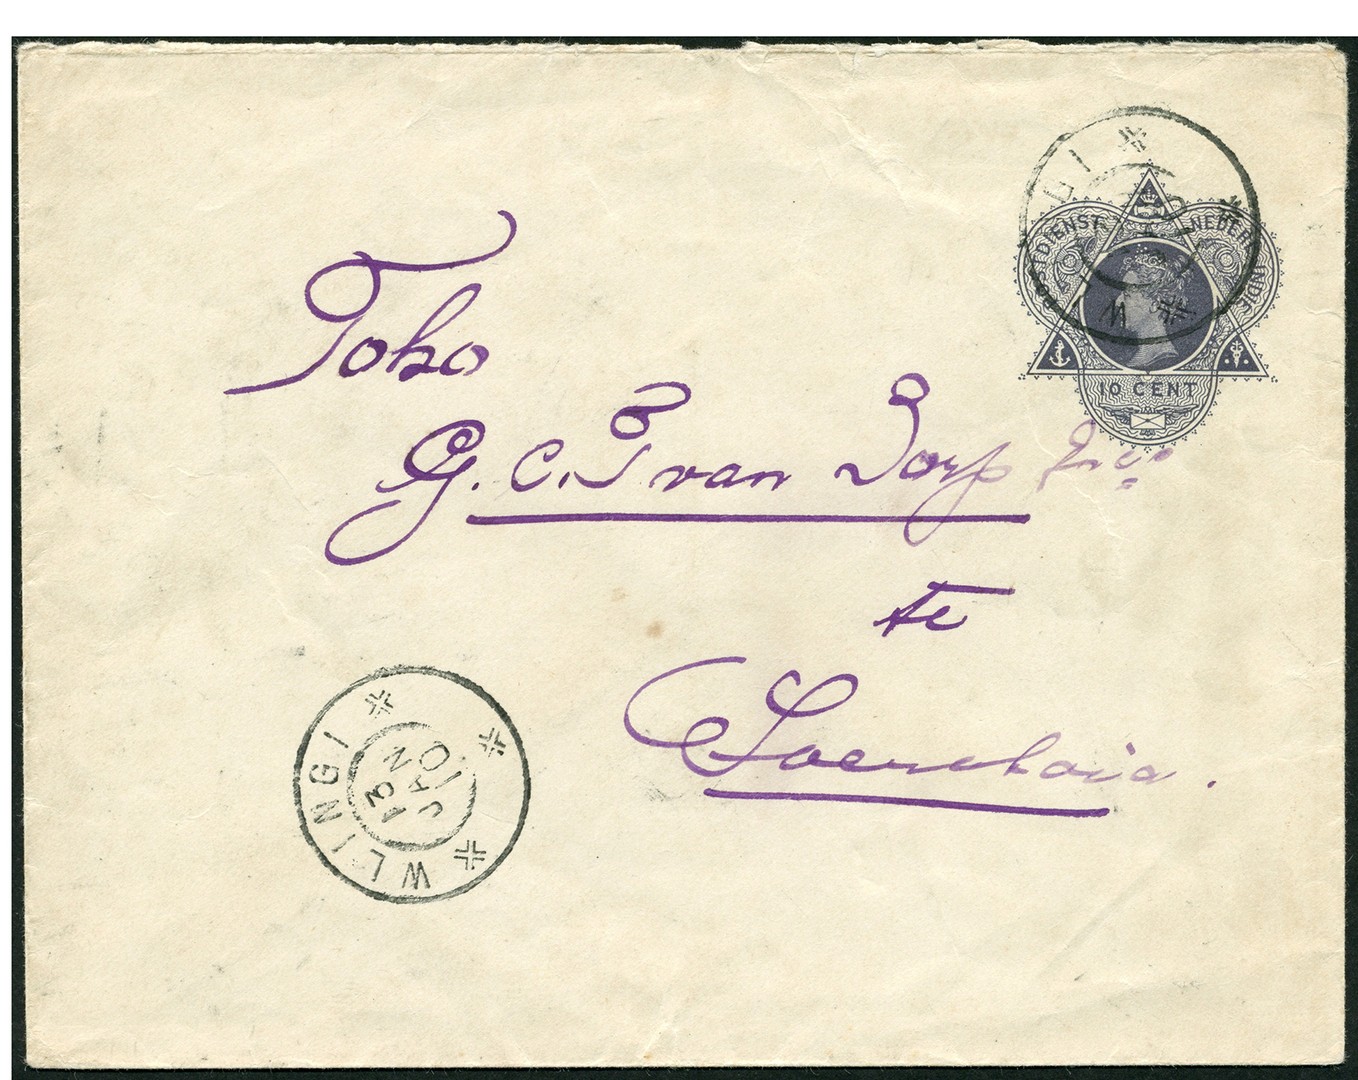 POSTDIENST NEDERL. INDIE
10 CENT
Toko
G. C. T van Dorp & Co
te
Soerabaia.
WLINGI
13 JAN 10